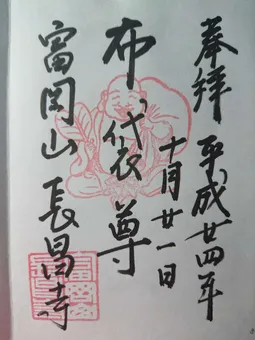 奉拝 平成廿四年
十月廿一日
布袋尊
富岡山 長昌寺